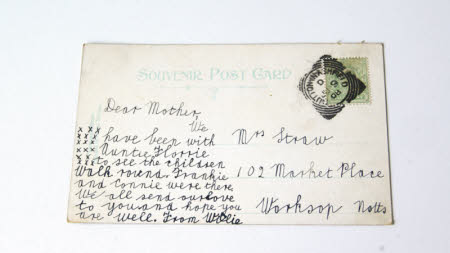 SOUVENIR POST CARD
Dear Mother,
We
x x x have been with
x x x Auntie Florrie
x x x to see the children
walk round. Frankie
and Connie were there
We all send our love
to you and hope you
are well. From Willie
Mrs Straw
102 Market Place
Worksop Notts